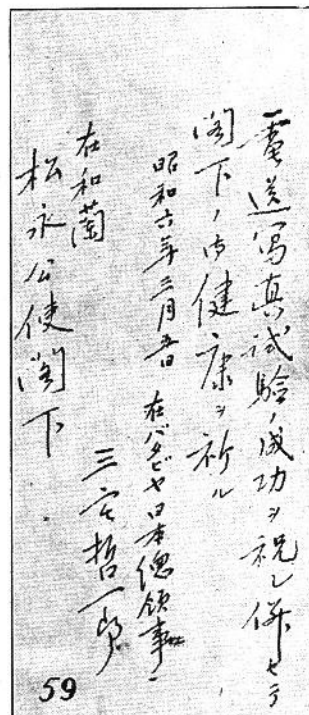 電送寫真試驗ノ成功ヲ祝シ併セテ
閣下ノ御健康ヲ祈ル
昭和六年三月五日 在バタビヤ日本總領事
三宅哲一郎
在和蘭
松永公使閣下
59